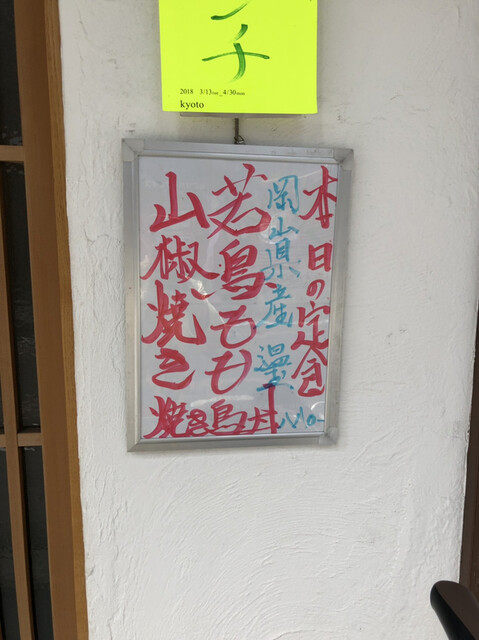 ンチ
2018 3/13tue_4/30mon
kyoto
本日の定食
岡山県産
若鳥もも
山椒焼き
焼き鳥丼